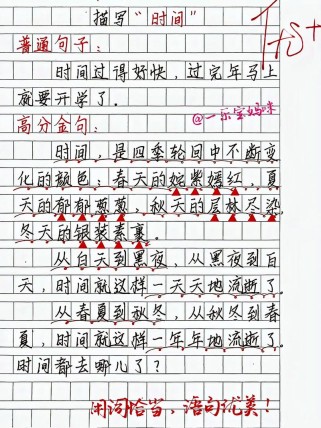 描写“时间”
普通句子:
时间过得好快，过完年马上
就要开学了。
高分金句:
@一乐宝妈咪
时间，是四季轮回中不断变
化的颜色：春天的姹紫嫣红，夏
天的郁郁葱葱，秋天的层林尽染，
冬天的银装素裹。
从白天到黑夜，从黑夜到白
天，时间就这样一天天地流逝了。
从春夏到秋冬，从秋冬到春
夏，时间就这样一年年地流逝了。
时间都去哪儿了？
用词恰当，语句优美！